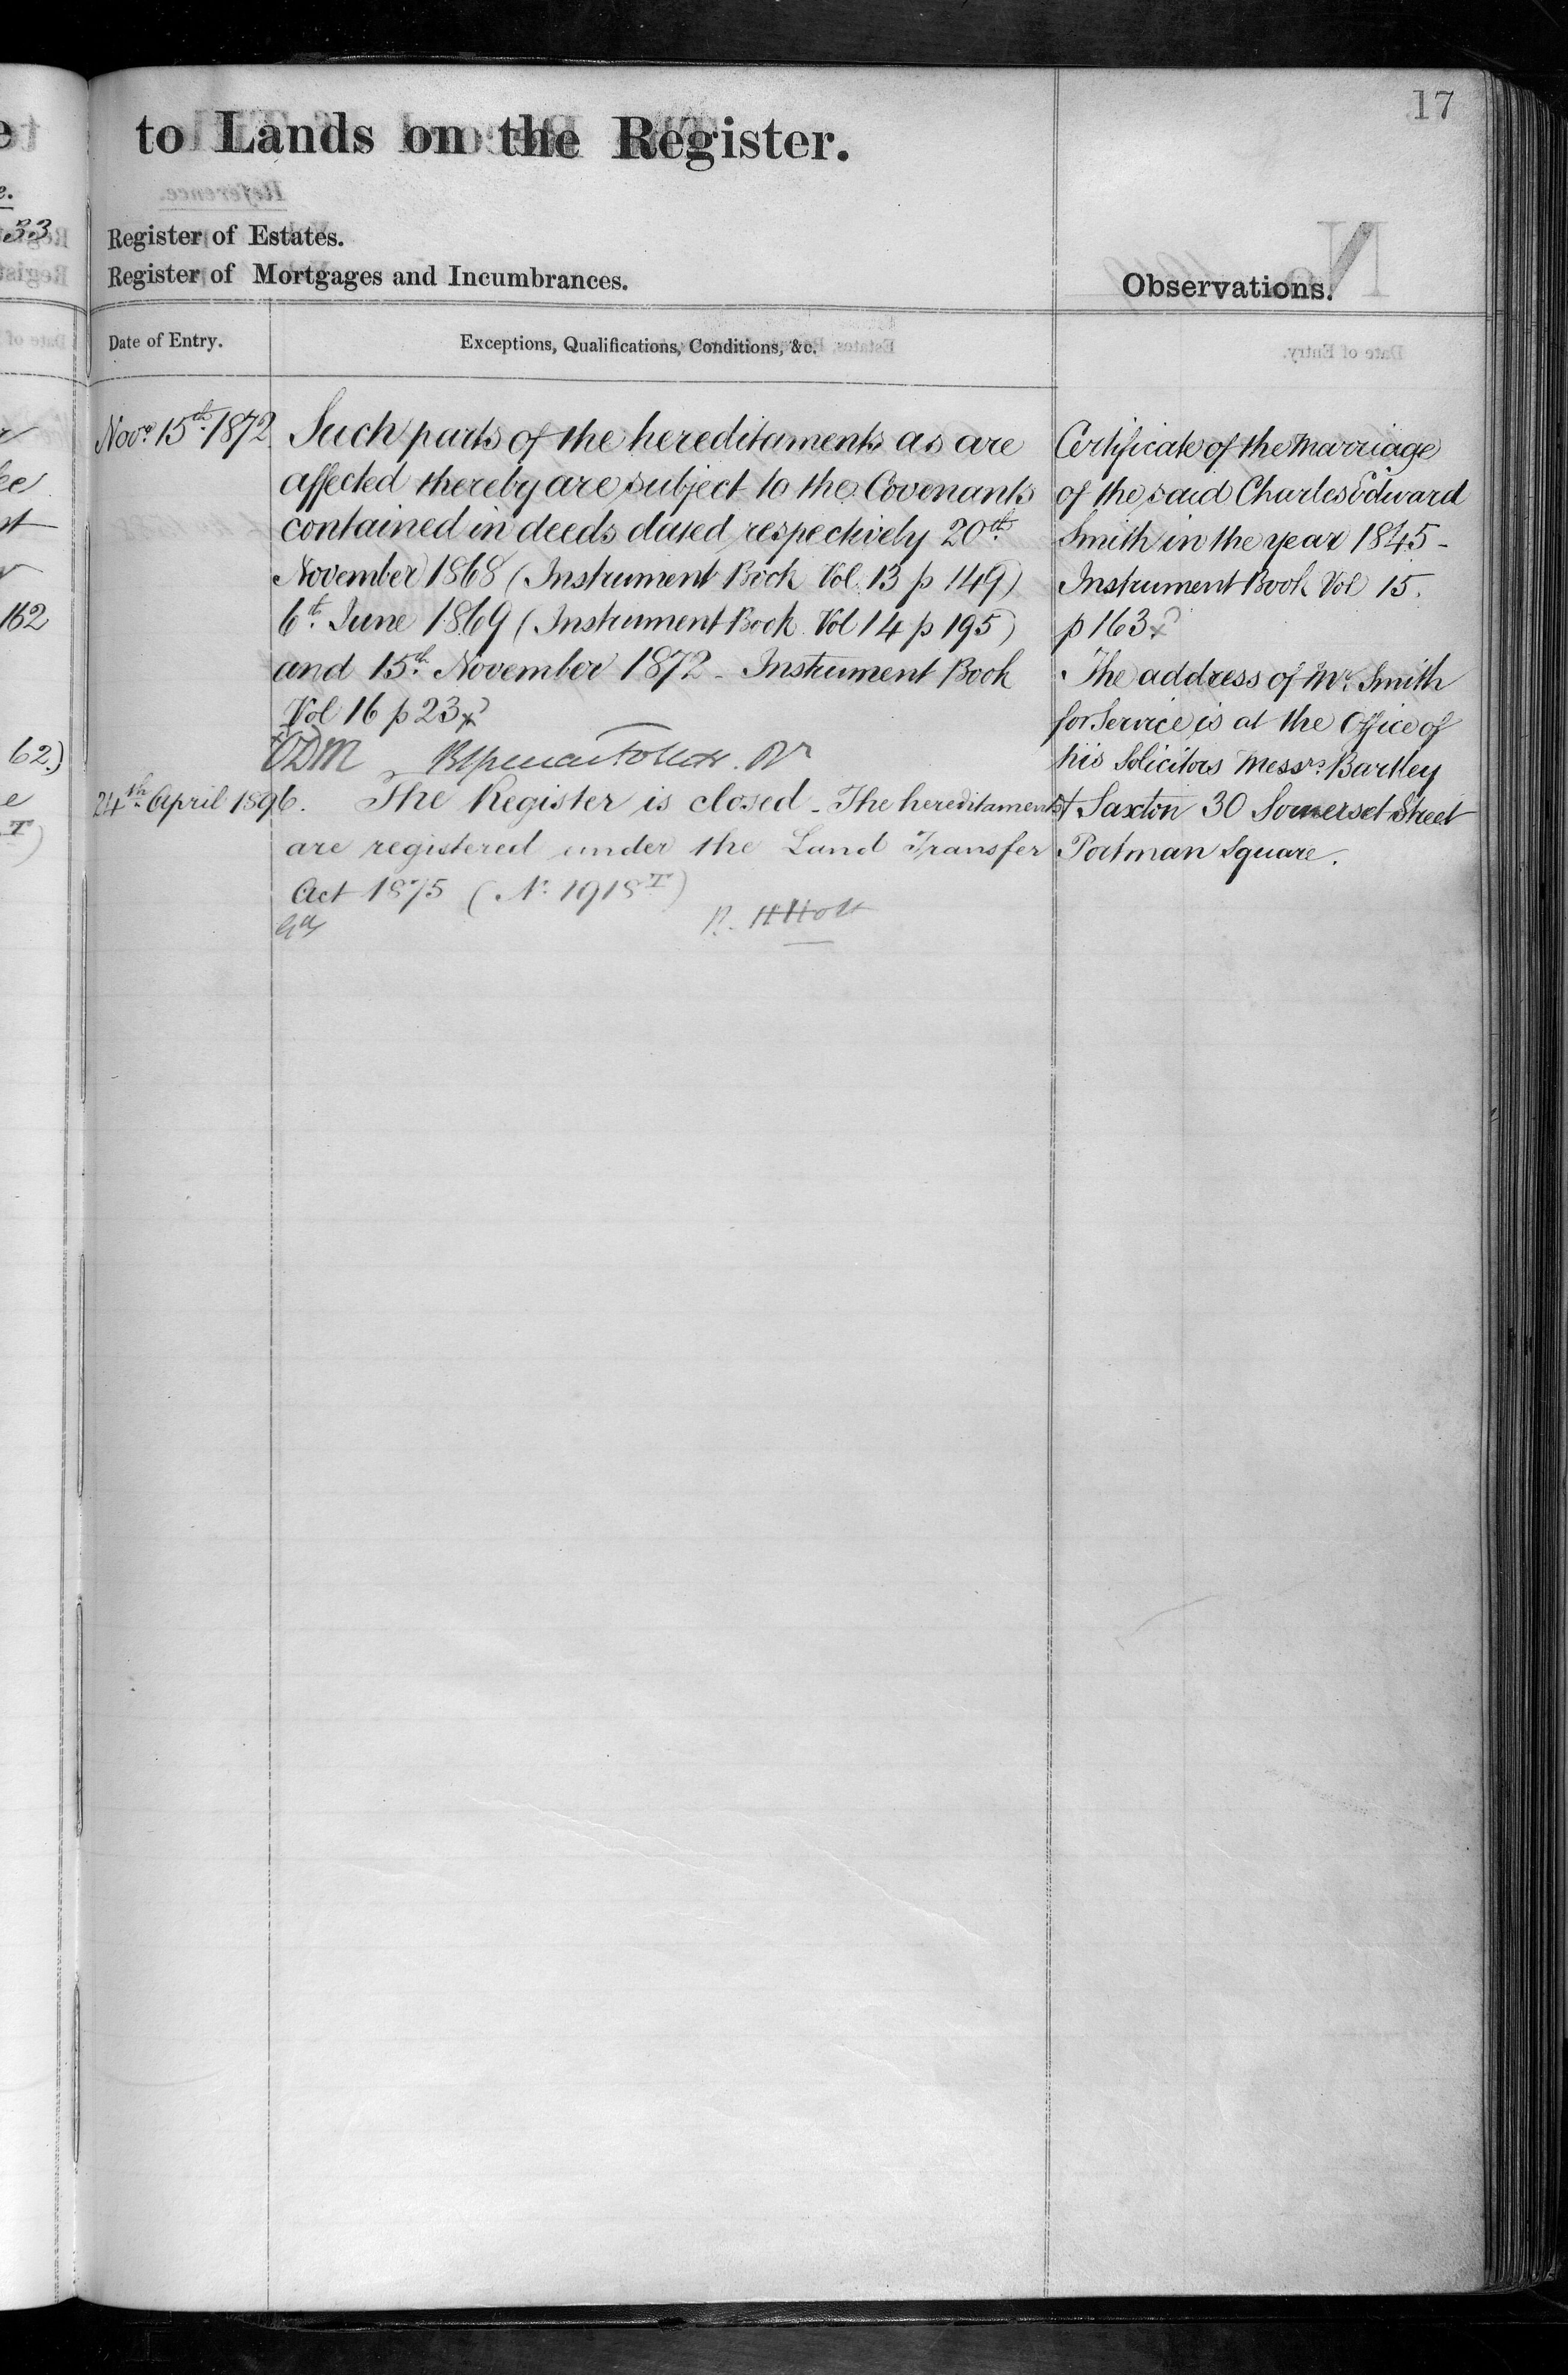 17
to Lands on the Register.
Register of Estates.
Register of Mortgages and Incumbrances.
Observations.
Date of Entry.
Exceptions, Qualifications, Conditions, &c.
Novr 15th 1872
Such parts of the hereditaments as are
affected thereby are subject to the Covenants
contained in deeds dated respectively 20th
November 1868 (Instrument Book Vol. 13 p 149)
6th June 1869 (Instrument Book Vol 14 p 195)
and 15th November 1872 - Instrument Book
Vol 16 p 23
ODM
24th April 1896.
The Register is closed - The hereditaments
are registered under the Land Transfer
Act 1875 (No 1918T)
R. H Holt
Certificate of the Marriage
of the said Charles Edward
Smith in the year 1845 -
Instrument Book Vol 15.
p 163
The address of Mr Smith
for Service is at the Office of
his Solicitors Messrs Bartley
& Saxton 30 Somerset Street
Portman Square.
33
162
62.)